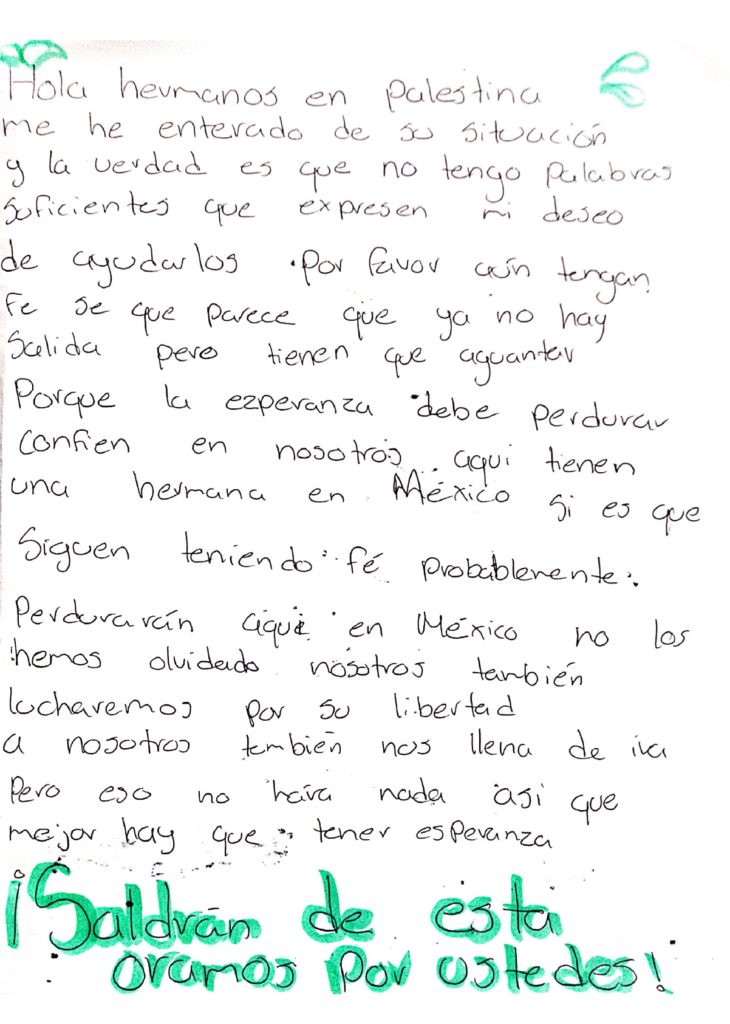 Hola hermanos en palestina
me he enterado de su situación
y la verdad es que no tengo palabras
suficientes que expresen mi deseo
de ayudarlos por favor aún tengan
fe se que parece que ya no hay
Salida pero tienen que aguantar
Porque la ezperanza debe perdurar
confien en nosotros aqui tienen
una hermana en México si es que
Siguen teniendo fé probablemente
Perdurarán aquí en México no los
hemos olvidado nosotros también
lucharemos por su libertad
a nosotros también nos llena de ira
Pero eso no hará nada asi que
mejor hay que tener esperanza
¡Saldrán de esta
oramos por ustedes!